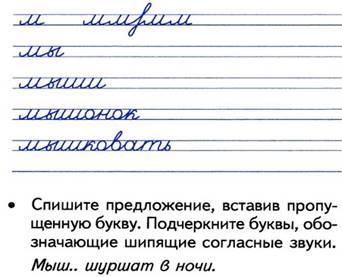 м ммумм
мы
мыши
мышонок
мышковать
• Спишите предложение, вставив пропу-
щенную букву. Подчеркните буквы, обо-
значающие шипящие согласные звуки.
Мыш.. шуршат в ночи.